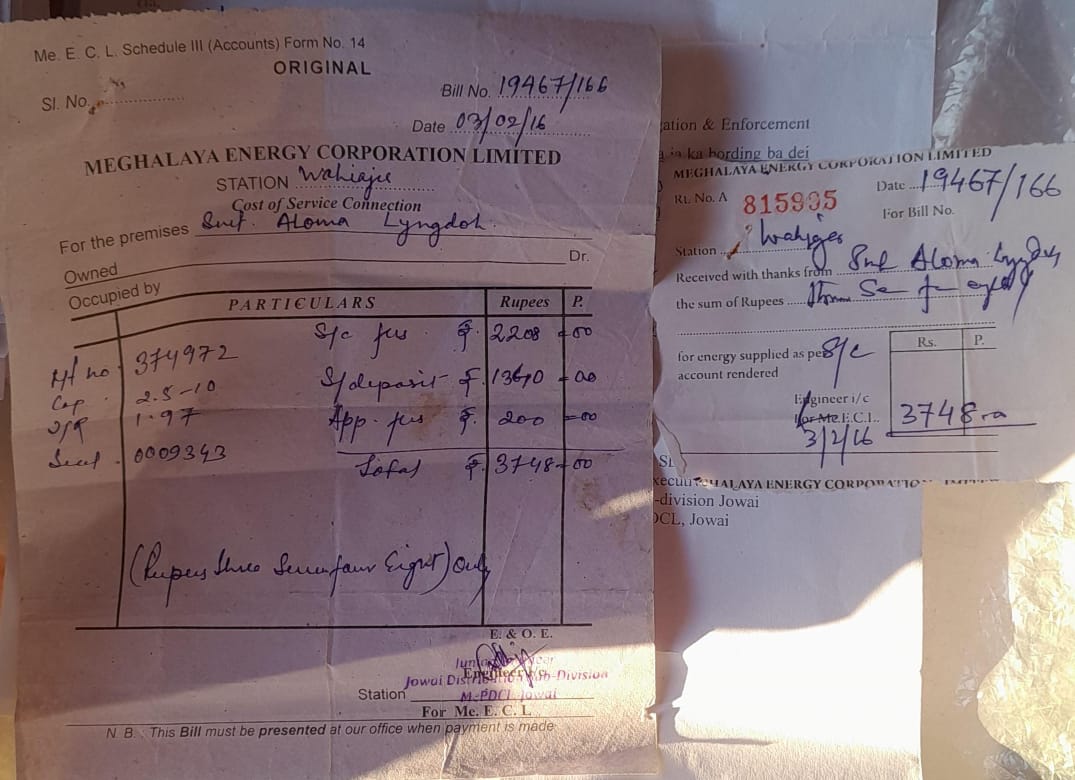 Me. E. C. L. Schedule III (Accounts) Form No. 14
ORIGINAL
Sl. No. ..................
Bill No. 19467/166
Date 03/02/16
MEGHALAYA ENERGY CORPORATION LIMITED
STATION Wahiajer
Cost of Service Connection
For the premises Smt. Aloma Lyngdoh.
Owned
Dr.
Occupied by
PARTICULARS Rupees P.
S/c fees ₹. 2208 =00
M no. 374972
Cap 2.5-10 S/deposit ₹. 1340 =00
1.97 App. fees ₹. 200 =00
Seal. 0009343
Total ₹. 3748=00
(Rupees three Seven four Eight) only
E. & O. E.
Engineer
Jowai Sub-Division
Station M-PDCL Jowai
For Me. E. C. L
N. B. : This Bill must be presented at our office when payment is made
ation & Enforcement
ka bording ba dei
MEGHALAYA ENERGY CORPORATION LIMITED
Rt. No. A 815935
Date ....19467/166
For Bill No.
Station Wahjajer
Received with thanks from Smt Aloma Lyngdoh
the sum of Rupees Three Se four eight
for energy supplied as per S/c
account rendered
Rs. P.
Engineer i/c
For Me.E.C.L. 3748=00
3/2/16
SI
xecuti
HALAYA ENERGY CORPORATION
-division Jowai
DCL, Jowai